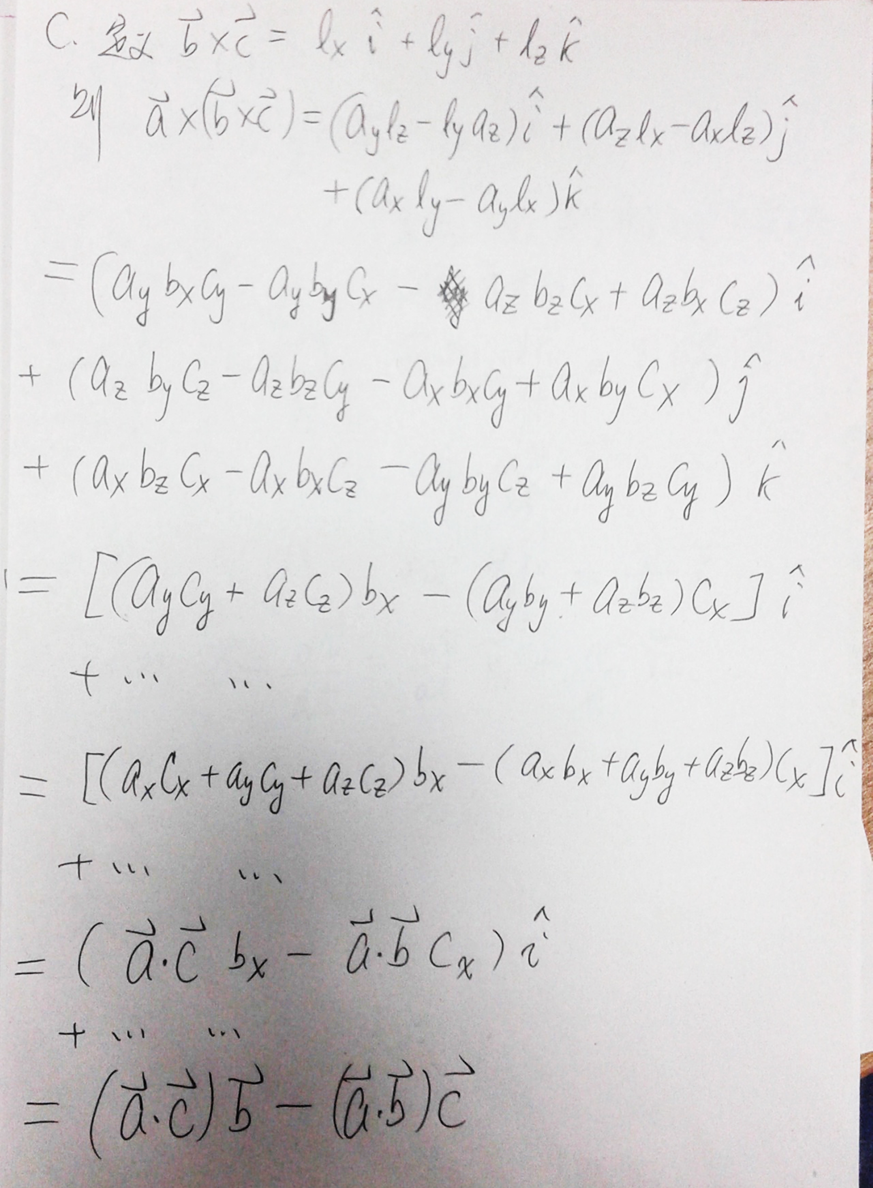 C. 定义 \vec{b}×\vec{c} = l_x \hat{i} + l_y \hat{j} + l_z \hat{k}
则 \vec{a}×(\vec{b}×\vec{c}) = (a_y l_z − l_y a_z)\hat{i} + (a_z l_x − a_x l_z)\hat{j}
+ (a_x l_y − a_y l_x)\hat{k}
= (a_y b_x c_y − a_y b_y c_x − a_z b_z c_x + a_z b_x c_z) \hat{i}
+ (a_z b_y c_z − a_z b_z c_y − a_x b_x c_y + a_x b_y c_x) \hat{j}
+ (a_x b_z c_x − a_x b_x c_z − a_y b_y c_z + a_y b_z c_y) \hat{k}
= [(a_y c_y + a_z c_z) b_x − (a_y b_y + a_z b_z) c_x] \hat{i}
+ ... ...
= [(a_x c_x + a_y c_y + a_z c_z) b_x − (a_x b_x + a_y b_y + a_z b_z) c_x] \hat{i}
+ ... ...
= (\vec{a}·\vec{c} b_x − \vec{a}·\vec{b} c_x) \hat{i}
+ ... ...
= (\vec{a}·\vec{c})\vec{b} − (\vec{a}·\vec{b})\vec{c}